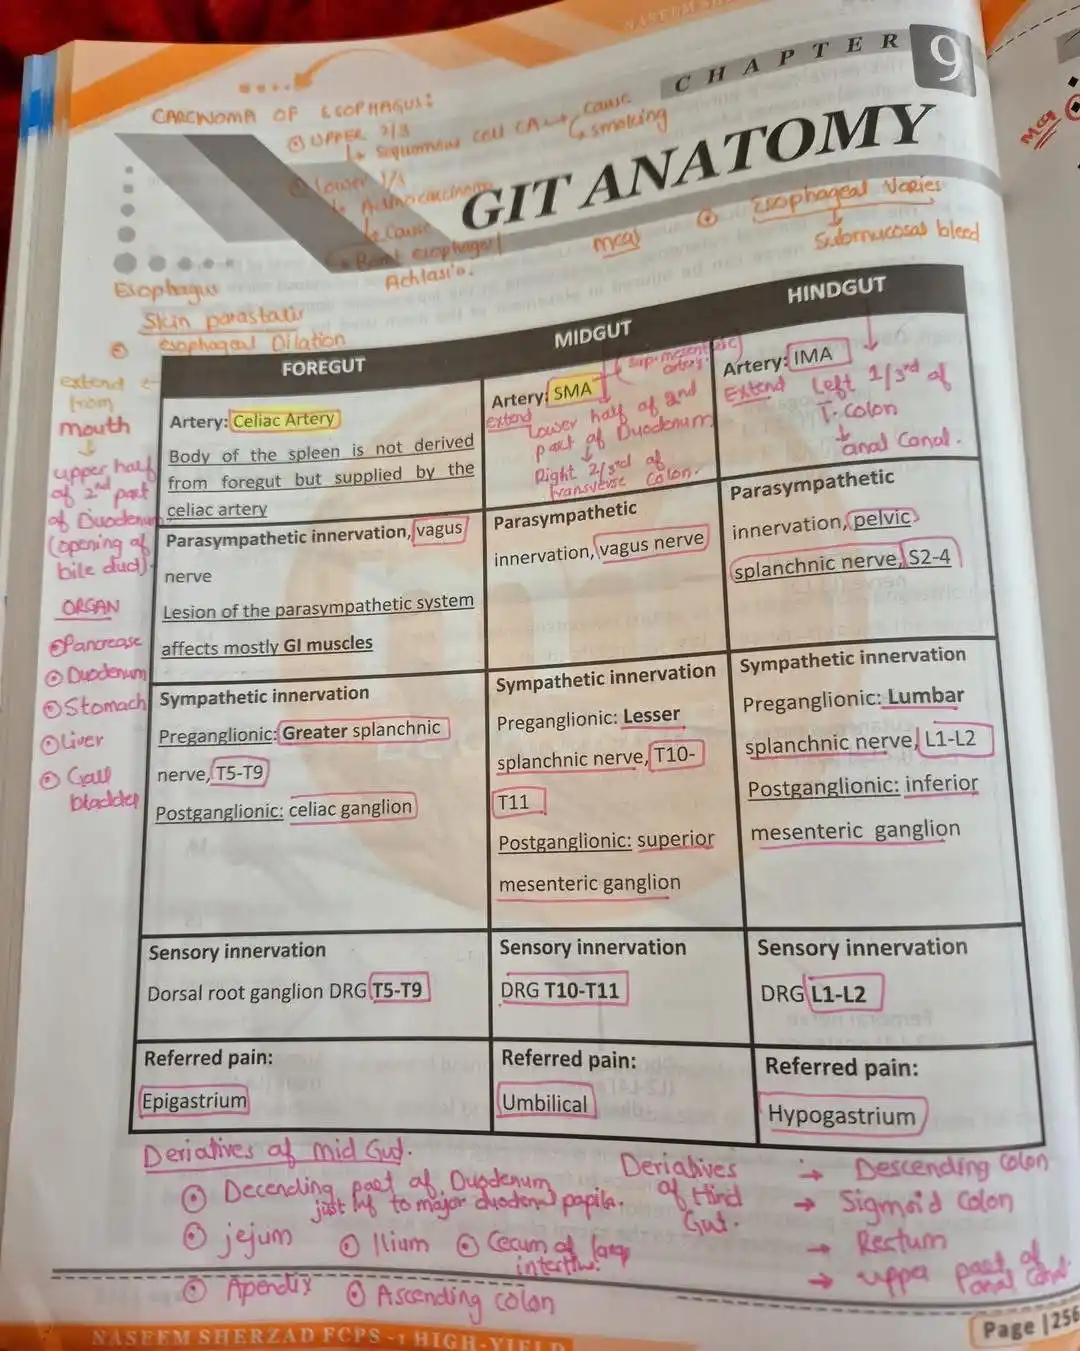 NASEEM SH
CHAPTER 9
GIT ANATOMY
CARCINOMA OF ESOPHAGUS:
UPPER 2/3
Sequamous cell CA → cause
↳ smoking
Lower 1/3
Adinocarcinoma
↳ cause
Baret esophagus
Achlasia.
mcqs
Esophageal Varies
↓
Submucosal bleed
MCQ
Esophagus
Skin parastatis
esophageal Dilation
extend
from
mouth
↓
upper half
of 2nd part
of Duodenum
(opening of
bile duct)
ORGAN
Pancrease
Duodenum
Stomach
Liver
Gall
bladder
FOREGUT
Artery: Celiac Artery
Body of the spleen is not derived
from foregut but supplied by the
celiac artery
Parasympathetic innervation, vagus
nerve
Lesion of the parasympathetic system
affects mostly GI muscles
Sympathetic innervation
Preganglionic: Greater splanchnic
nerve, T5-T9
Postganglionic: celiac ganglion
Sensory innervation
Dorsal root ganglion DRG T5-T9
Referred pain:
Epigastrium
MIDGUT
Artery: SMA
sup. mesenteric
artery.
extend
Lower half of 2nd
part of Duodenum
↓
Right 2/3rd of
transverse colon.
Parasympathetic
innervation, vagus nerve
Sympathetic innervation
Preganglionic: Lesser
splanchnic nerve, T10-
T11
Postganglionic: superior
mesenteric ganglion
Sensory innervation
DRG T10-T11
Referred pain:
Umbilical
HINDGUT
Artery: IMA
Extend Left 1/3rd of
T. Colon
↓
anal Canal.
Parasympathetic
innervation, pelvic
splanchnic nerve, S2-4
Sympathetic innervation
Preganglionic: Lumbar
splanchnic nerve, L1-L2
Postganglionic: inferior
mesenteric ganglion
Sensory innervation
DRG L1-L2
Referred pain:
Hypogastrium
Deriatives of mid Gut.
Decending part of Duodenum
just inf to major duodenal papila.
jejum Ilium Cecum of large
intestine
Apendix Ascending colon
Deriatives
of Hind
Gut.
→ Descending colon
→ Sigmoid colon
→ Rectum
→ upper part of
anal canal.
NASEEM SHERZAD FCPS -1 HIGH-YIELD
Page |256